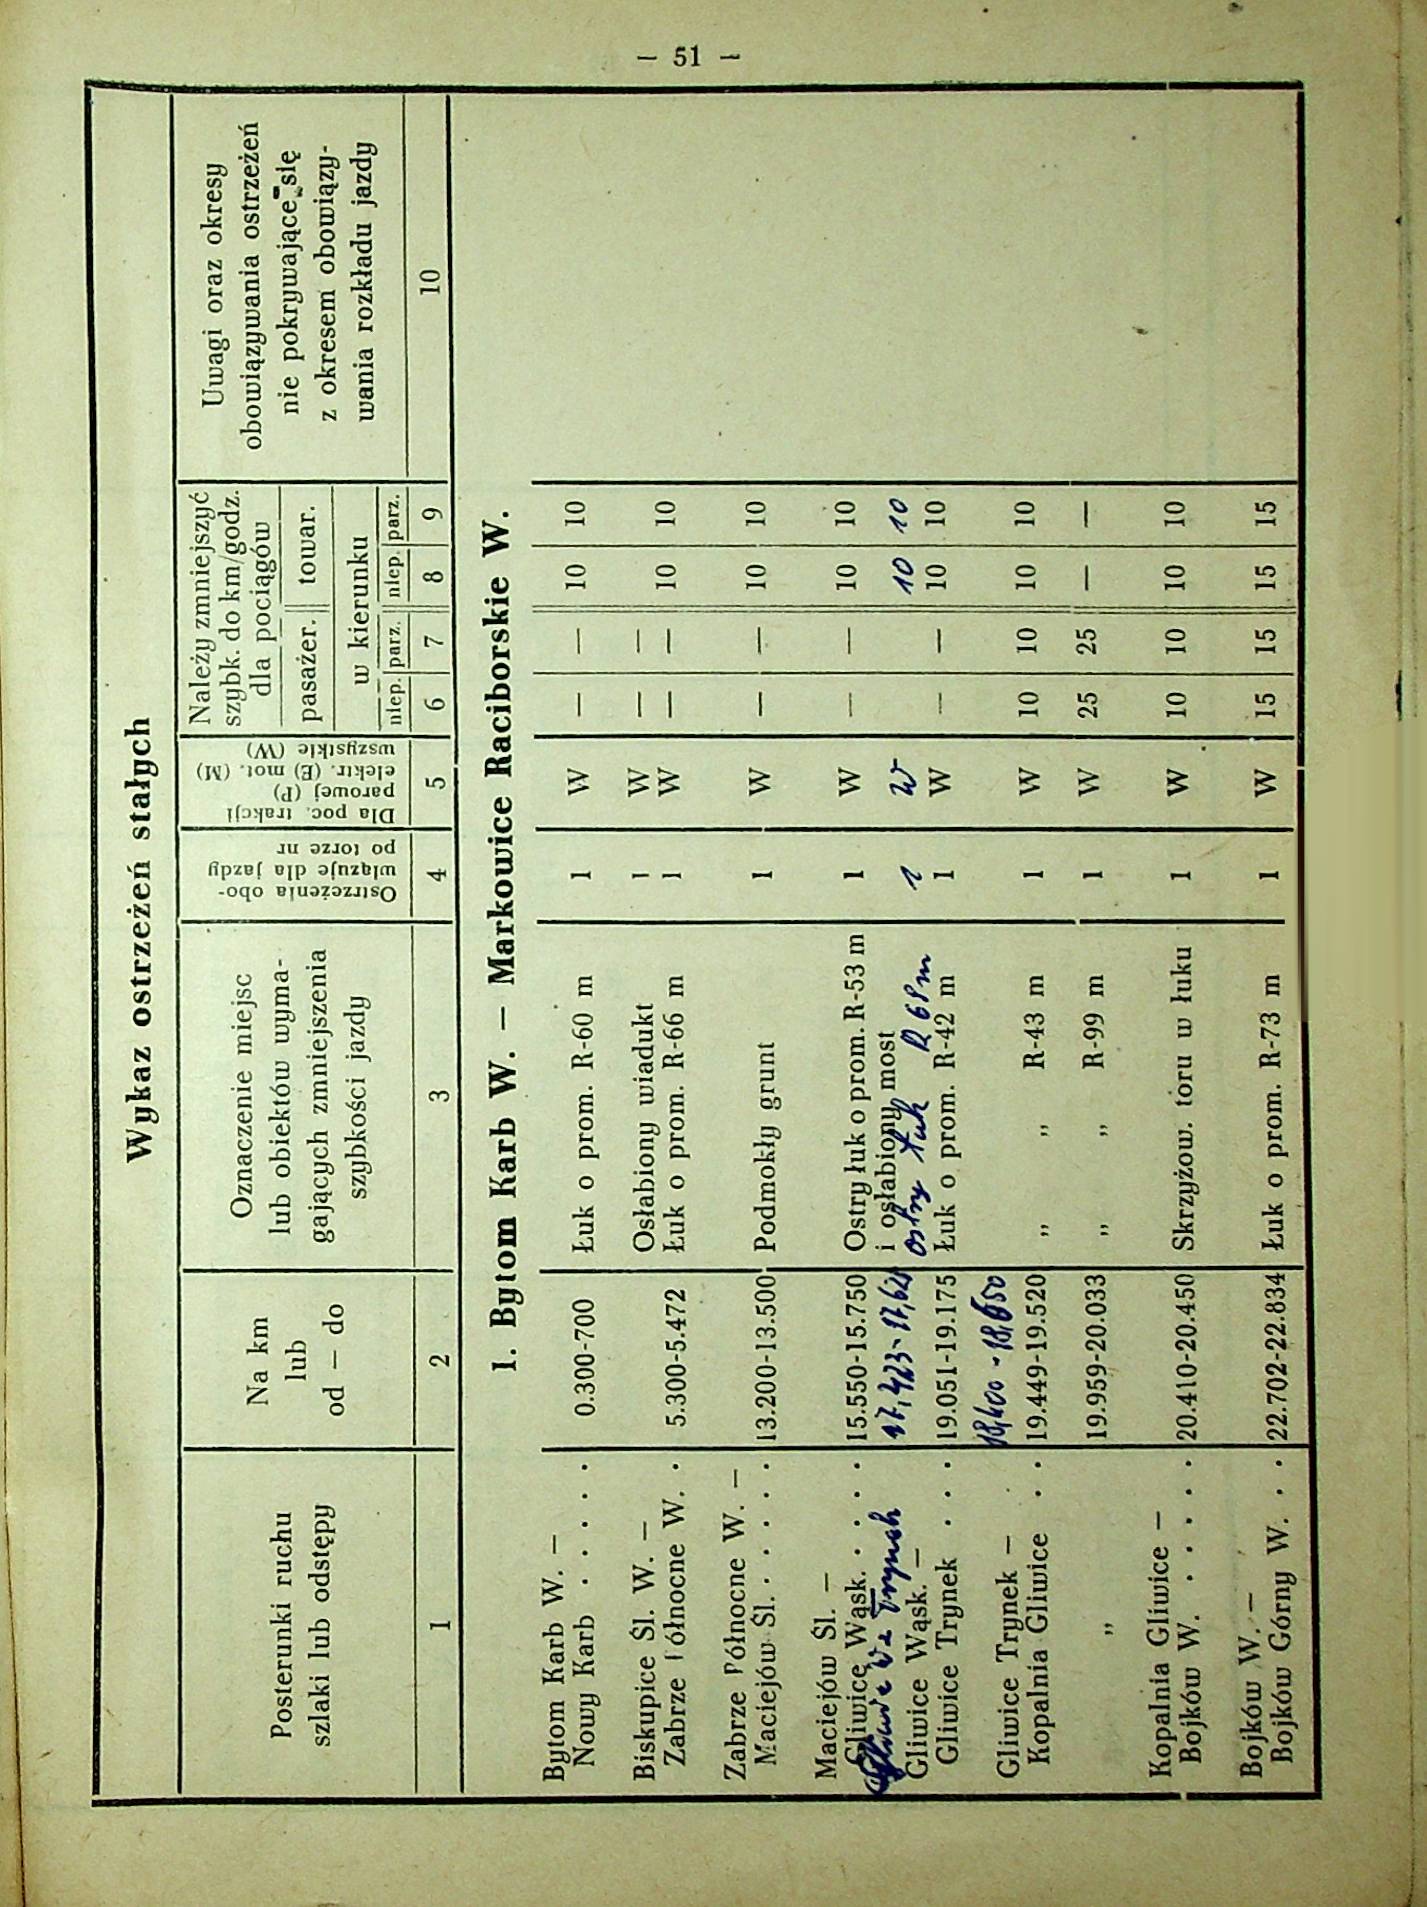 — 51 —
Wykaz ostrzeżeń stałych
Posterunki ruchu
szlaki lub odstępy
Na km
lub
od — do
Oznaczenie miejsc
lub obiektów wyma-
gających zmniejszenia
szybkości jazdy
Ostrzeżenia obo-
wiązuje dla jazdy
po torze nr
Dla poc. trakcji
parowej (P)
elektr. (E) mot. (M)
wszystkie (W)
Należy zmniejszyć
szybk. do km/godz.
dla pociągów
pasażer. towar.
w kierunku
niep. parz. niep. parz.
Uwagi oraz okresy
obowiązywania ostrzeżeń
nie pokrywające się
z okresem obowiązy-
wania rozkładu jazdy
1 2 3 4 5 6 7 8 9 10
1. Bytom Karb W. — Markowice Raciborskie W.
Bytom Karb W. —
Nowy Karb . . . . . 0.300-700 Łuk o prom. R-60 m 1 W — — 10 10
Biskupice Śl. W. — Osłabiony wiadukt 1 W — —
Zabrze Północne W. . 5.300-5.472 Łuk o prom. R-66 m 1 W — — 10 10
Zabrze Północne W. —
Maciejów Śl. . . . . . 13.200-13.500 Podmokły grunt 1 W — — 10 10
Maciejów Śl. —
Gliwice Wąsk. . . . . 15.550-15.750 Ostry łuk o prom. R-53 m 1 W — — 10 10
i osłabiony most
Trynek 17,423- ostry łuk R 68m 1 W 10 10
Gliwice Wąsk. —
Gliwice Trynek . . . 19.051-19.175 Łuk o prom. R-42 m 1 W — — 10 10
18,400 - 18,650
Gliwice Trynek —
Kopalnia Gliwice . . 19.449-19.520 „ „ R-43 m 1 W 10 10 10 10
„ 19.959-20.033 „ „ R-99 m 1 W 25 25 — —
Kopalnia Gliwice —
Bojków W. . . . . . 20.410-20.450 Skrzyżow. toru w łuku 1 W 10 10 10 10
Bojków W. —
Bojków Górny W. . . 22.702-22.834 Łuk o prom. R-73 m 1 W 15 15 15 15